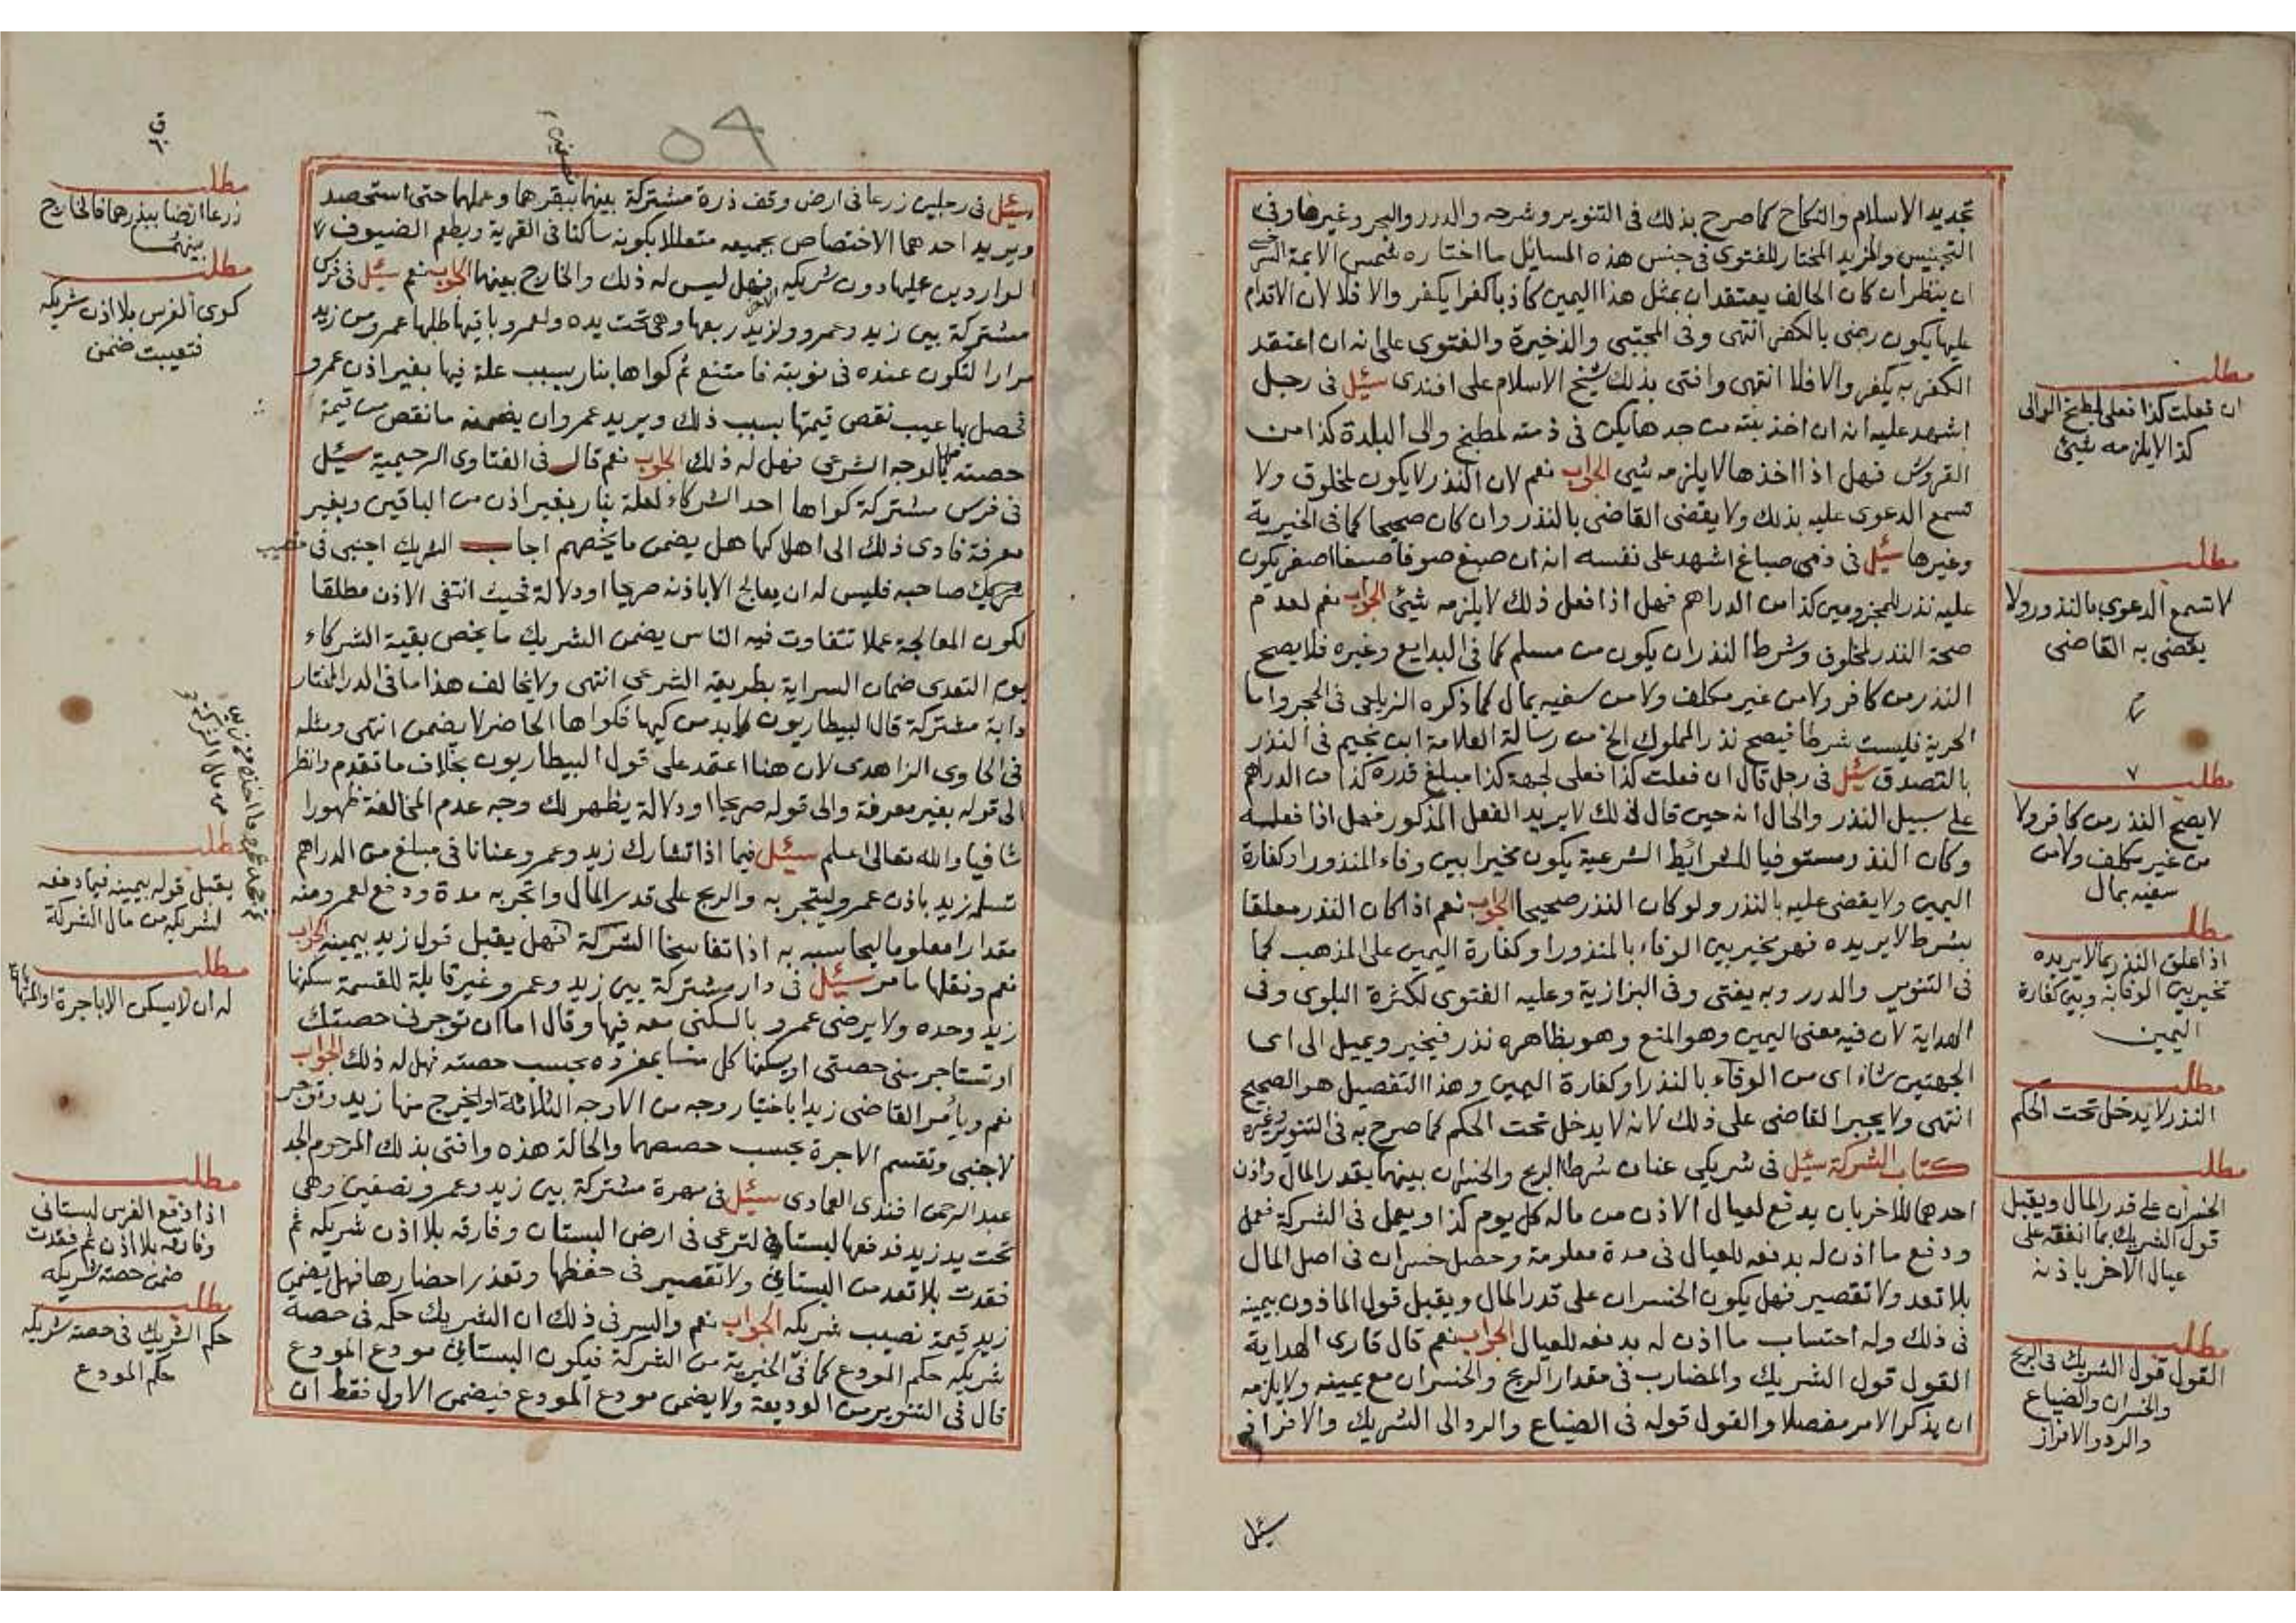 تجديد الاسلام والنكاح كما صرح بذلك فى التنوير وشرحه والدرر والبحر وغيرها وفى
التجنيس والمزيد المختار للفتوى فى جنس هذه المسايل ما اختاره شمس الايمة السرخسى
ان ينظر ان كان الحالف يعتقد ان بمثل هذا اليمين كاذبا كفرا يكفر والا فلا لان الاقدام
عليها يكون رضى بالكفر انتهى وفى المجتبى والذخيرة والفتوى على انه ان اعتقد
الكفر به يكفر والا فلا انتهى وافتى بذلك شيخ الاسلام على افندى سئل فى رجل
اشهد عليه انه ان اخذ بنته من جدها يكن فى ذمته لمطبخ والى البلدة كذا من
القروش فهل اذا اخذها لا يلزمه شيى الجواب نعم لان النذر لا يكون لمخلوق ولا
تسمع الدعوى عليه بذلك ولا يقضى القاضى بالنذر وان كان صحيحا كما فى الخيرية
وغيرها سئل فى ذمى صباغ اشهد على نفسه انه ان صبغ صوفا صبغا اصفر يكون
عليه نذر للمجزومين كذا من الدراهم فهل اذا فعل ذلك لا يلزمه شيئ الجواب نعم لعدم
صحة النذر لمخلوق وشرط النذر ان يكون من مسلم كما فى البدايع وغيره فلا يصح
النذر من كافر ولا من غير مكلف ولا من سفيه بمال كما ذكره الزيلعى فى الحجر واما
الحرية فليست شرطا فيصح نذر المملوك الخ من رسالة العلامة ابن نجيم فى النذر
بالتصدق سئل فى رجل قال ان فعلت كذا فعلى لجهة كذا مبلغ قدره كذا من الدراهم
على سبيل النذر والحال انه حين قال ذلك لا يريد الفعل المذكور فهل اذا فعله
وكان النذر مستوفيا للشرائط الشرعية يكون مخيرا بين وفاء المنذور او كفارة
اليمين ولا يقضى عليه بالنذر ولو كان النذر صحيحا الجواب نعم اذا كان النذر معلقا
بشرط لا يريده فهو مخير بين الوفاء بالمنذور او كفارة اليمين على المذهب كما
فى التنوير والدرر وبه يفتى وفى البزازية وعليه الفتوى لكثرة البلوى وفى
الهداية لان فيه معنى اليمين وهو المنع وهو بظاهره نذر فيخير ويميل الى اى
الجهتين شاء اى من الوفاء بالنذر او كفارة اليمين وهذا التفصيل هو الصحيح
انتهى ولا يجبر القاضى على ذلك لانه لا يدخل تحت الحكم كما صرح به فى التنوير وغيره
كتاب الشركة سئل فى شريكى عنان شرطا الربح والخسران بينهما بقدر المال واذن
احدهما للاخر بان يدفع لعيال الاذن من ماله كل يوم كذا ويعمل فى الشركة فعمل
ودفع ما اذن له بدفعه للعيال فى مدة معلومة وحصل خسران فى اصل المال
بلا تعد ولا تقصير فهل يكون الخسران على قدر المال ويقبل قول الماذون بيمينه
فى ذلك وله احتساب ما اذن له بدفعه للعيال الجواب نعم قال قارى الهداية
القول قول الشريك والمضارب فى مقدار الربح والخسران مع يمينه ولا يلزمه
ان يذكر الامر مفصلا والقول قوله فى الضياع والرد الى الشريك والافراز
سئل
مطلب
ان فعلت كذا فعلى لمطبخ الوالى
كذا لا يلزمه شيئ
مطلب
لا تسمع الدعوى بالنذور ولا
يقضى به القاضى
مطلب
لا يصح النذر من كافر ولا
من غير مكلف ولا من
سفيه بمال
مطلب
اذا علق النذر بما لا يريده
تخير بين الوفا به وبين كفارة
اليمين
مطلب
النذر لا يدخل تحت الحكم
مطلب
الخسران على قدر المال ويقبل
قول الشريك بما انفقه على
عيال الاخر باذنه
مطلب
القول قول الشريك فى الربح
والخسران والضياع
والرد والافراز
سئل فى رجلين زرعا فى ارض وقف ذرة مشتركة بينهما ببقرهما وعملهما حتى استحصد
ويريد احدهما الاختصاص بجميعه متعللا بكونه ساكنا فى القرية ويطعم الضيوف
الواردين عليها دون شريكه فهل ليس له ذلك والخارج بينهما الجواب نعم سئل فى فرس
مشتركة بين زيد وعمرو ولزيد ربعها وهى تحت يده ولعمرو باقيها طلبها عمرو من زيد
مرارا لتكون عنده فى نوبته فامتنع ثم كواها بنار بسبب علة فيها بغير اذن عمرو
فحصل بها عيب نقص قيمتها بسبب ذلك ويريد عمرو ان يضمنه ما نقص من قيمة
حصته بالوجه الشرعى فهل له ذلك الجواب نعم قال فى الفتاوى الرحيمية سئل
فى فرس مشتركة كواها احد الشركاء لعلة بنار بغير اذن من الباقين وبغير
معرفة فادى ذلك الى اهلاكها هل يضمن ما يخصهم اجاب الشريك اجنبى فى نصيب
شريك صاحبه فليس له ان يعالج الا باذنه صريحا او دلالة فحيث انتفى الاذن مطلقا
لكون المعالجة عملا تتفاوت فيه الناس يضمن الشريك ما يخص بقية الشركاء
يوم التعدى ضمان السراية بطريقه الشرعى انتهى ولا يخالف هذا ما فى الدر المختار
دابة مشتركة قال البيطاريون لا بد من كيها فكواها الحاضر لا يضمن انتهى ومثله
فى الحاوى الزاهدى لان هنا اعتمد على قول البيطاريون بخلاف ما تقدم وانظر
الى قوله بغير معرفة والى قوله صريحا او دلالة يظهر لك وجه عدم المخالفة ظهورا
شافيا والله تعالى اعلم سئل فيما اذا تشارك زيد وعمرو عنانا فى مبلغ من الدراهم
تسلمه زيد باذن عمرو ليتجر به والربح على قدر المال واتجر به مدة ودفع لعمرو منه
مقدارا معلوما ليحاسبه به اذا تفاسخا الشركة فهل يقبل قول زيد بيمينه الجواب
نعم ونقلها ما مر سئل فى دار مشتركة بين زيد وعمرو غير قابلة للقسمة سكنها
زيد وحده ولا يرضى عمرو بالسكنى معه فيها وقال اما ان توجرنى حصتك
او تستاجر منى حصتى او يسكنها كل منا بمفرده بحسب حصته فهل له ذلك الجواب
نعم ويامر القاضى زيدا باختيار وجه من الاوجه الثلاثة او يخرج منها زيد وتوجر
لاجنبى وتقسم الاجرة بحسب حصصهما والحالة هذه وافتى بذلك المرحوم الجد
عبد الرحمن افندى العمادى سئل فى مهرة مشتركة بين زيد وعمرو نصفين وهى
تحت يد زيد فدفعها لبستانى لترعى فى ارض البستان وفارقه بلا اذن شريكه ثم
فقدت بلا تعد من البستانى ولا تقصير فى حفظها وتعذر احضارها فهل يضمن
زيد قيمة نصيب شريكه الجواب نعم والسر فى ذلك ان الشريك حكمه فى حصة
شريكه حكم المودع كما فى الخيرية من الشركة فيكون البستانى مودع المودع
قال فى التنوير من الوديعة ولا يضمن مودع المودع فيضمن الاول فقط ان
مطلب
زرعا ارضا ببذرهما فالخارج
بينهما
مطلب
كوى الفرس بلا اذن شريكه
فتعيبت ضمن
مطلب
يقبل قوله بيمينه فيما دفعه
لشريكه من مال الشركة
مطلب
له ان لا يسكن الا باجرة او المهاياة
مطلب
اذا دفع الفرس لبستانى
وفارقه بلا اذن ثم فقدت
ضمن حصة شريكه
مطلب
حكم الشريك فى حصة شريكه
حكم المودع